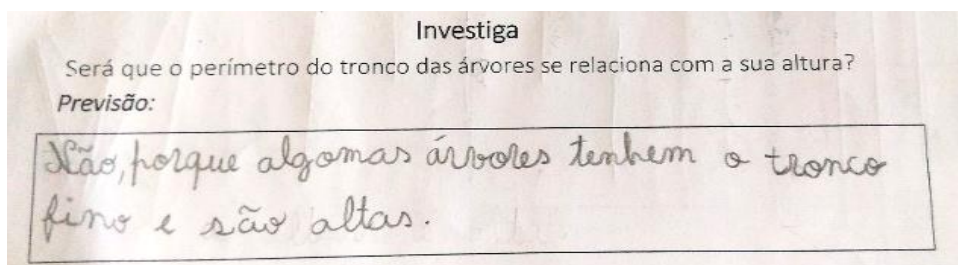 Investiga
Será que o perímetro do tronco das árvores se relaciona com a sua altura?
Previsão:
Não, porque algomas árvores tenhem o tronco
fino e são altas.